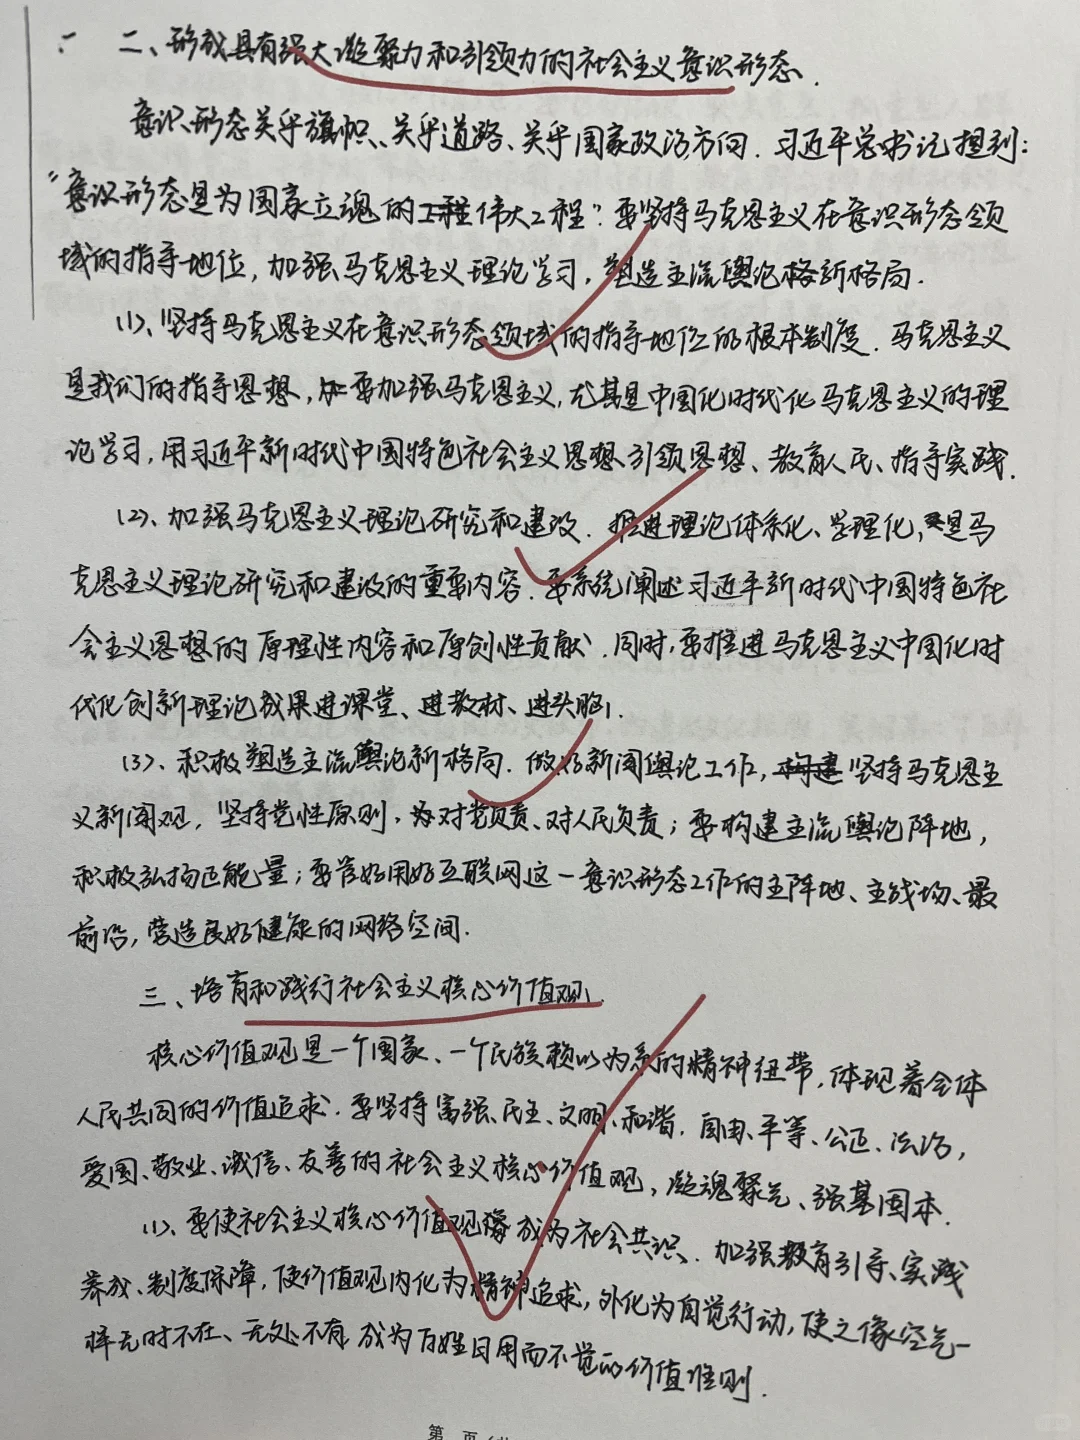 二、形成具有强大凝聚力和引领力的社会主义意识形态.
意识形态关乎旗帜、关乎道路、关乎国家政治方向. 习近平总书记提到:
“意识形态是为国家立魂的工程伟大工程”. 要坚持马克思主义在意识形态领
域的指导地位, 加强马克思主义理论学习, 塑造主流舆论格新格局.
(1)、坚持马克思主义在意识形态领域的指导地位的根本制度. 马克思主义
是我们的指导思想, 加要加强马克思主义, 尤其是中国化时代化马克思主义的理
论学习, 用习近平新时代中国特色社会主义思想引领思想、教育人民、指导实践.
(2)、加强马克思主义理论研究和建设. 推进理论体系化、学理化, 是马
克思主义理论研究和建设的重要内容. 要系统阐述习近平新时代中国特色社
会主义思想的原理性内容和原创性贡献. 同时, 要推进马克思主义中国化时
代化创新理论成果进课堂、进教材、进头脑.
(3)、积极塑造主流舆论新格局. 做好新闻舆论工作, 构建坚持马克思主
义新闻观, 坚持党性原则, 对党负责、对人民负责; 要构建主流舆论阵地,
积极弘扬正能量; 要管好用好互联网这一意识形态工作的主阵地、主战场、最
前沿, 营造良好健康的网络空间.
三、培育和践行社会主义核心价值观.
核心价值观是一个国家、一个民族赖以为系的精神纽带, 体现着全体
人民共同的价值追求. 要坚持富强、民主、文明、和谐, 自由、平等、公正、法治,
爱国、敬业、诚信、友善的社会主义核心价值观, 凝魂聚气、强基固本.
(1)、要使社会主义核心价值观成为社会共识. 加强教育引导、实践
养成、制度保障, 使价值观内化为精神追求, 外化为自觉行动, 使之像空气一
样无时不在、无处不有, 成为百姓日用而不觉的价值准则.
第 页